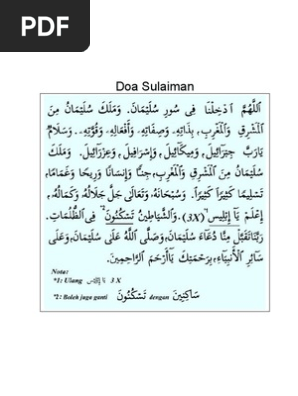 PDF
Doa Sulaiman
اَللّٰهُمَّ اَدْخِلْنَا فِى سُورِ سُلَيْمَانَ. وَمَلَكَ سُلَيْمَانُ مِنَ
الْمَشْرِقِ وَالْمَغْرِبِ, بِذَاتِهِ- وَصِفَاتِهِ- وَأَفْعَالِهِ- وَقُوَّتِهِ.- وَسَلَامٌ
يَارَبَّ جِبْرَائِيلَ, وَمِيكَائِيلَ, وَإِسْرَافِيلَ, وَعِزْرَائِيلَ. وَمَلَكَ
سُلَيْمَانُ مِنَ الْمَشْرِقِ وَالْمَغْرِبِ,جِنًّا وَإِنْسَانًا وَرِيحًا وَغَمَامًا,
تَسْلِيمًا كَثِيْرًا كَثِيْرًا. وَسُبْحَانَهُ, وَتَعَالَى جَلَّ جَلَالُهُ, وَكَمَالُهُ,
إِعْلَمْ يَا إِبْلِيس (3X).وَالشَّيَاطِيْنُ تَسْكُنُونَ فِى الظُّلُمَاتِ.
رَبَّنَا تَقَبَّلْ مِنَّا دُعَاءَ سُلَيْمَانَ,وَصَلَّى اللّٰهُ عَلَى سُلَيْمَانَ,وَعَلَى
سَائِرِ الْأَنْبِيَاءِ,بِرَحْمَتِكَ يَاأَرْحَمَ الرَّاحِمِينَ.
Nota:
*1: Ulang يَا إِبْلِيس 3 X
*2: Boleh juga ganti تَسْكُنُونَ dengan سَاكِنِينَ